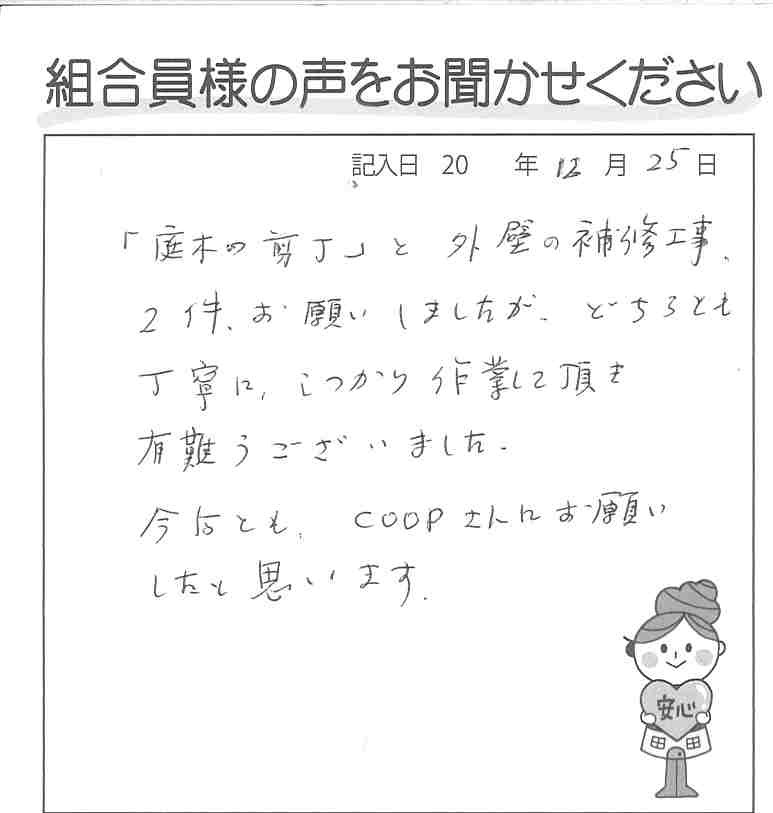 組合員様の声をお聞かせください
記入日 20 年 12 月 25 日
「庭木の剪丁」と外壁の補修工事、
2件、お願いしましたが、どちらとも
丁寧に、しっかり作業して頂き
有難うございました。
今后とも、COOPさんにお願い
したいと思います。
安心